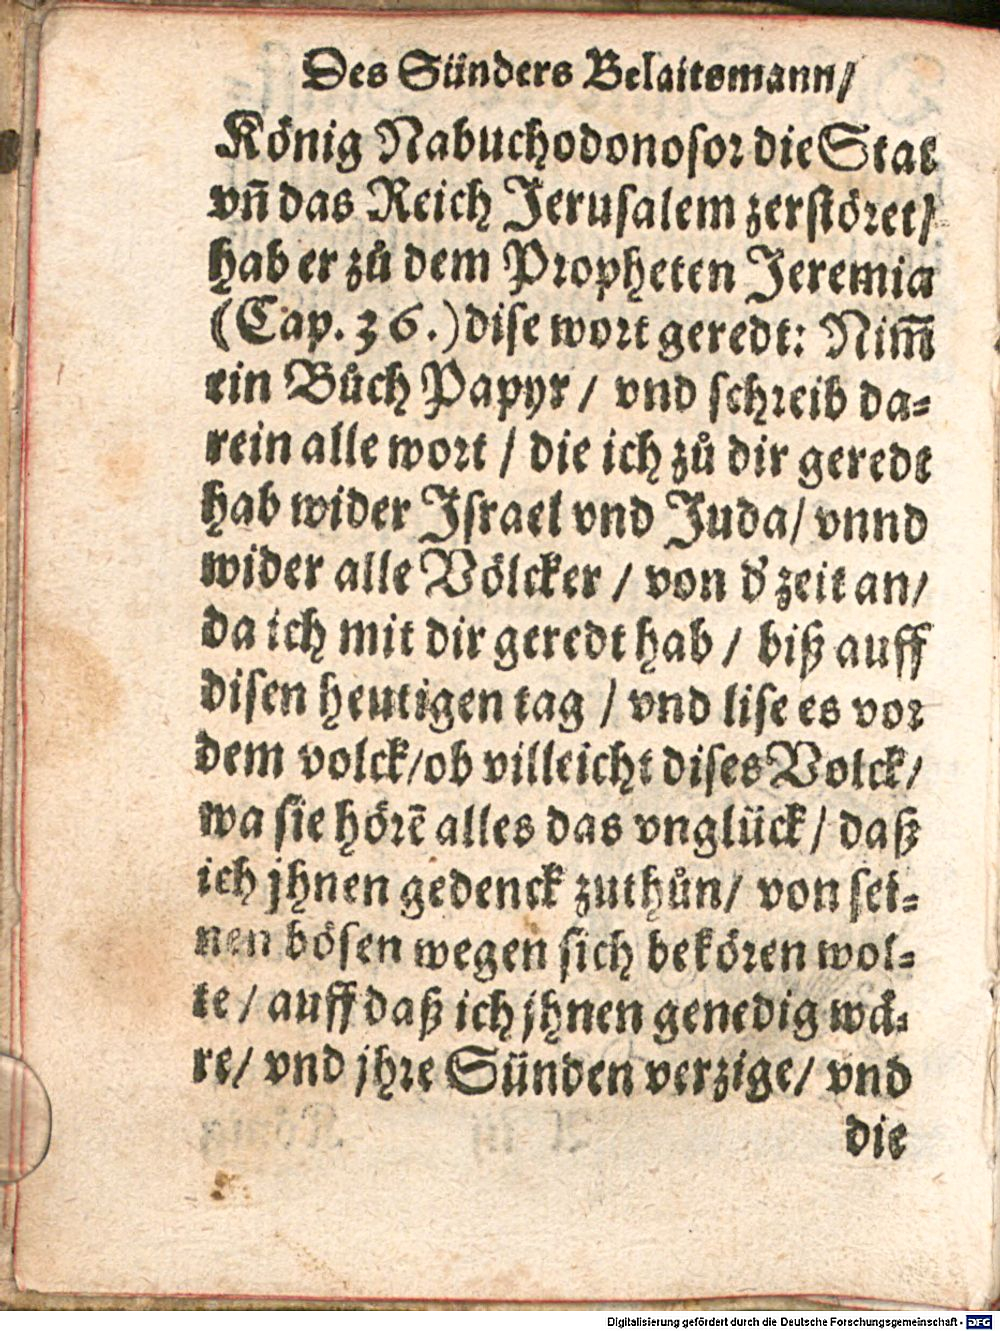 Des Sünders Belaitsmann/
König Nabuchodonosor die Stat
vñ das Reich Jerusalem zerstöret/
hab er zů dem Propheten Jeremia
(Cap. 36.) dise wort geredt: Nim̄
ein Bůch Papyr / vnd schreib da=
rein alle wort / die ich zů dir geredt
hab wider Israel vnd Juda/ vnnd
wider alle Völcker / von d' zeit an/
da ich mit dir geredt hab / biß auff
disen heutigen tag / vnd lise es vor
dem volck/ob villeicht dises Volck/
wa sie hörē alles das vnglück / daß
ich jhnen gedenck zuthůn/ von sei=
nen bösen wegen sich bekören wol=
te / auff daß ich jhnen genedig wä=
re/ vnd jhre Sünden verzige/ vnd
die
Digitalisierung gefördert durch die Deutsche Forschungsgemeinschaft - DFG